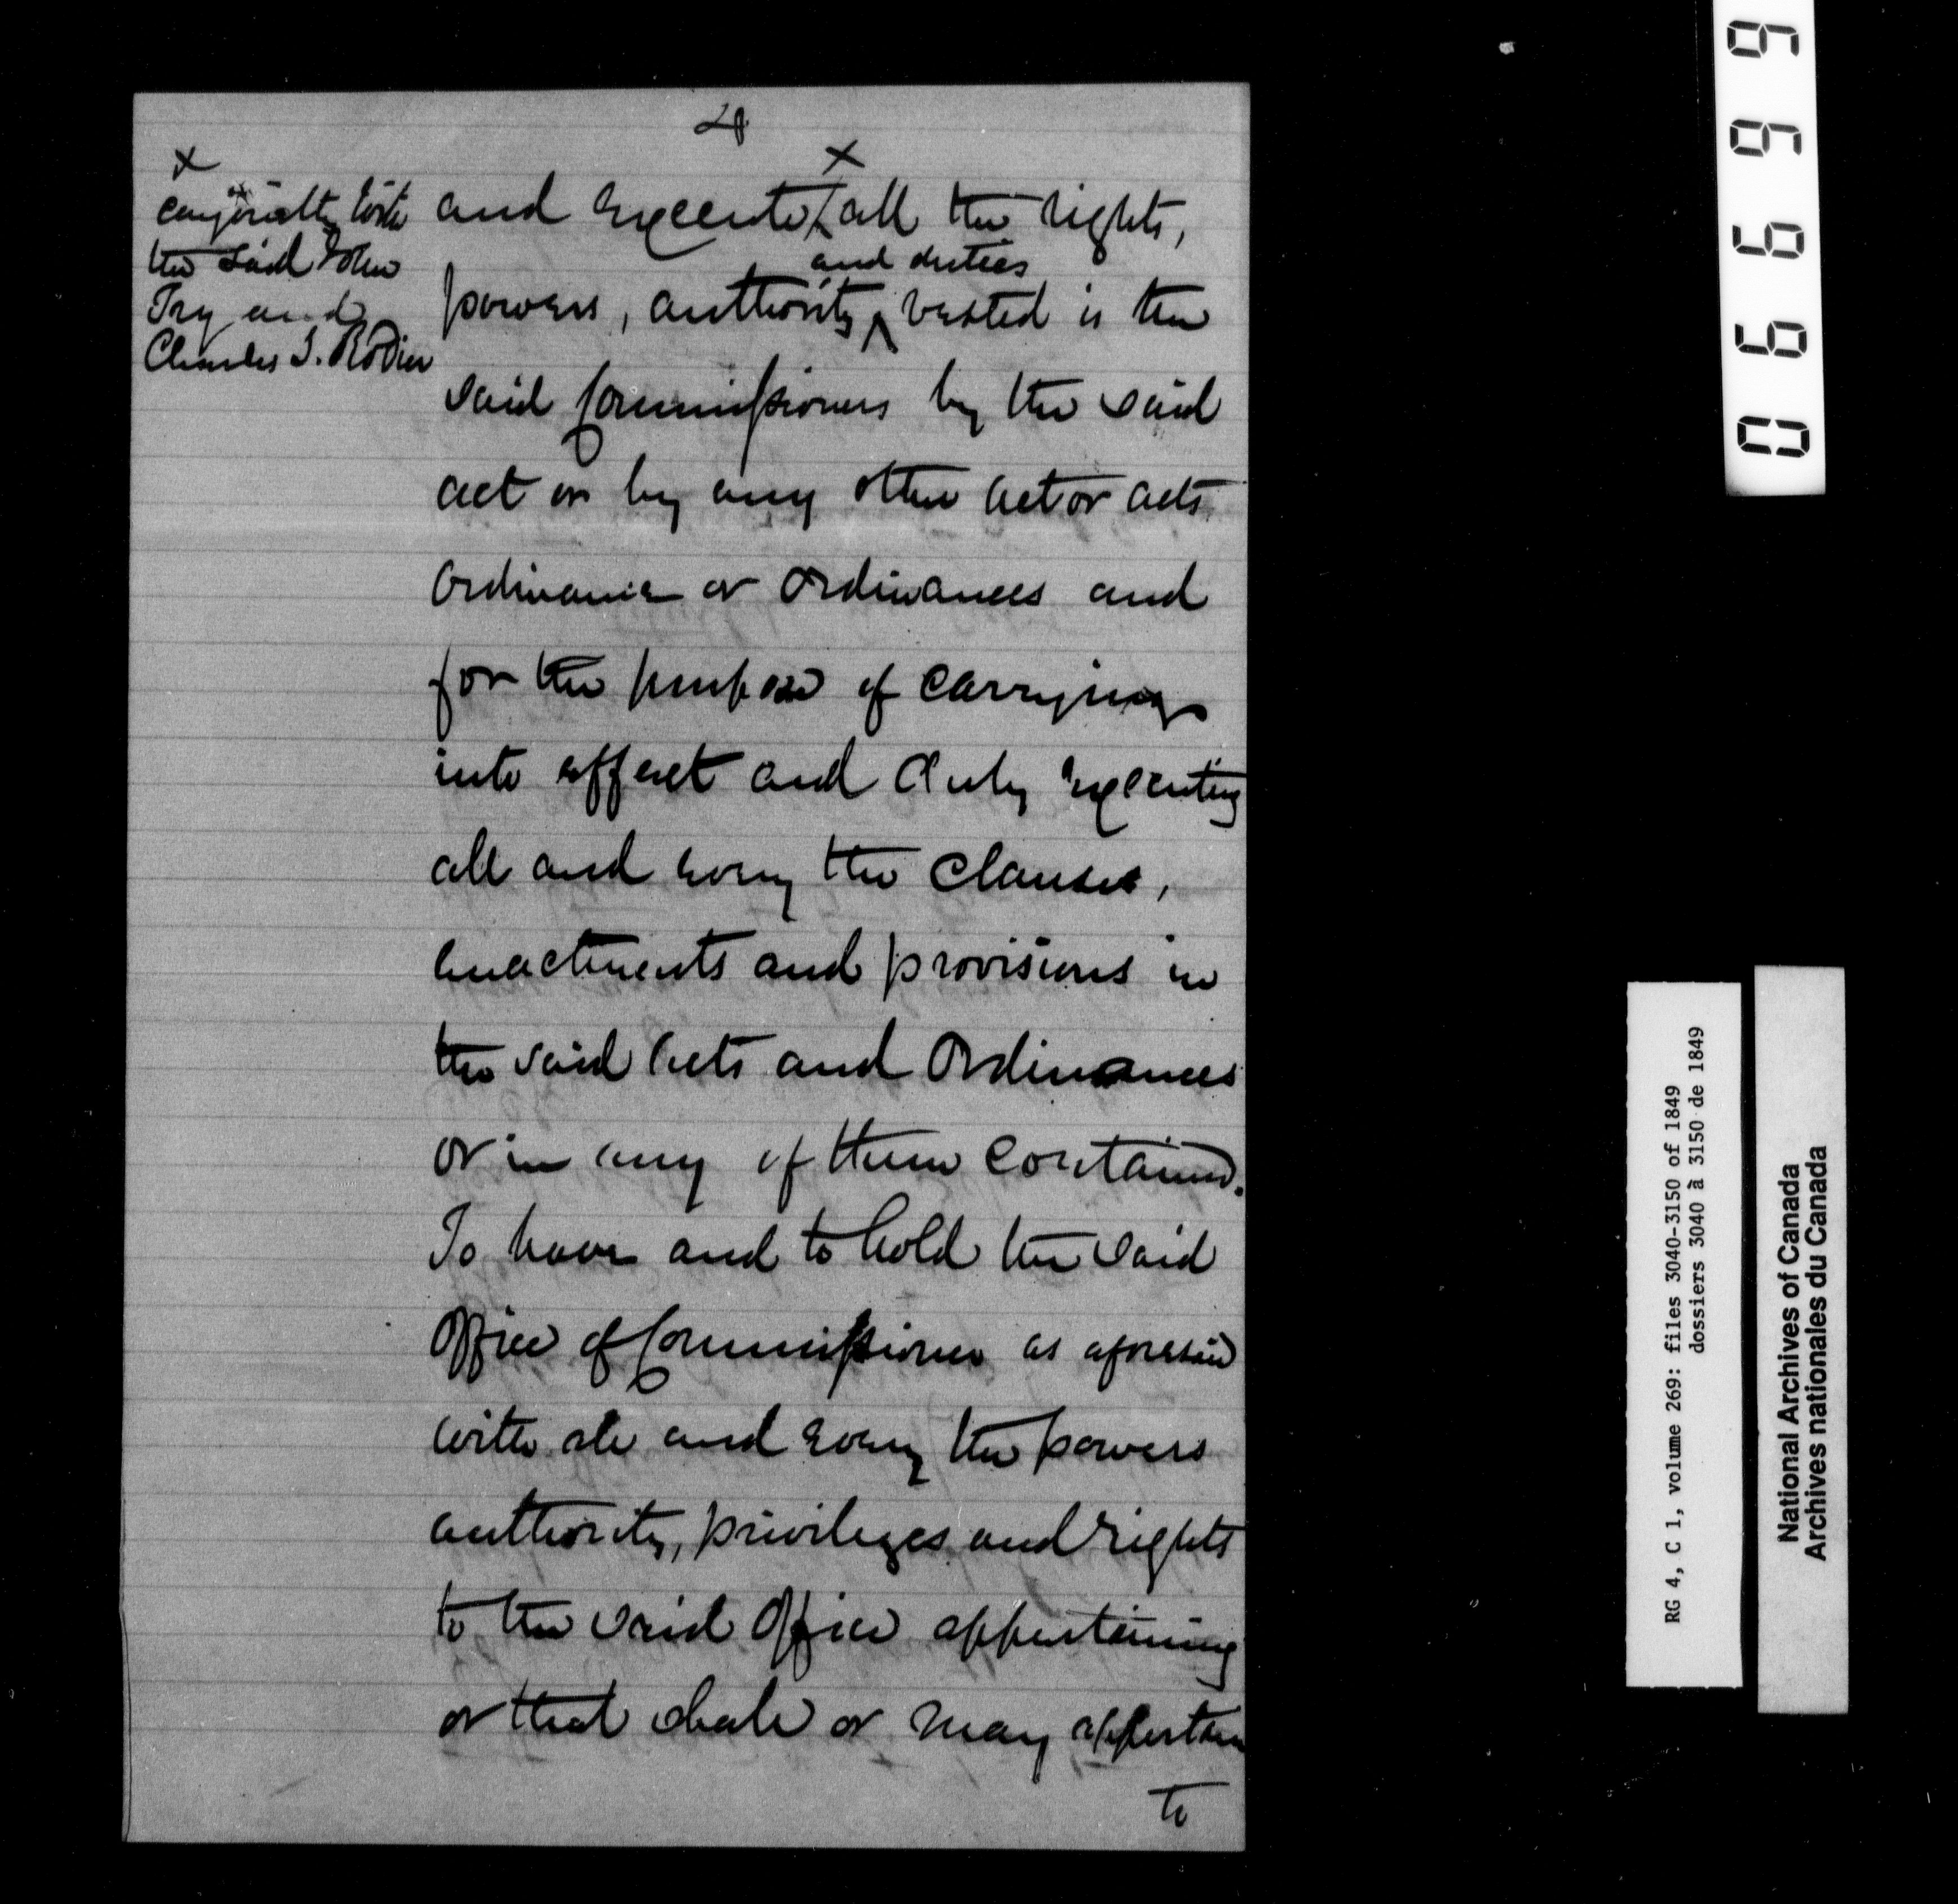 4
x
conjointly with
the said John
Try and
Charles S. Rodier
x
and execute all the rights,
and duties
powers, authority ^ vested in the
said Commissioners by the said
act or by any other act or acts
Ordinance or Ordinances and
for the purpose of carrying
into effect and duly executing
all and every the Clauses,
enactments and provisions in
the said acts and Ordinances
or in any of them contained.
To have and to hold the said
Office of Commissioner as aforesaid
with all and every the powers
authority, privileges and rights
to the said Office appertaining
or that shall or may appertain
to
066699
RG 4, C 1, volume 269: files 3040-3150 of 1849
dossiers 3040 à 3150 de 1849
National Archives of Canada
Archives nationales du Canada